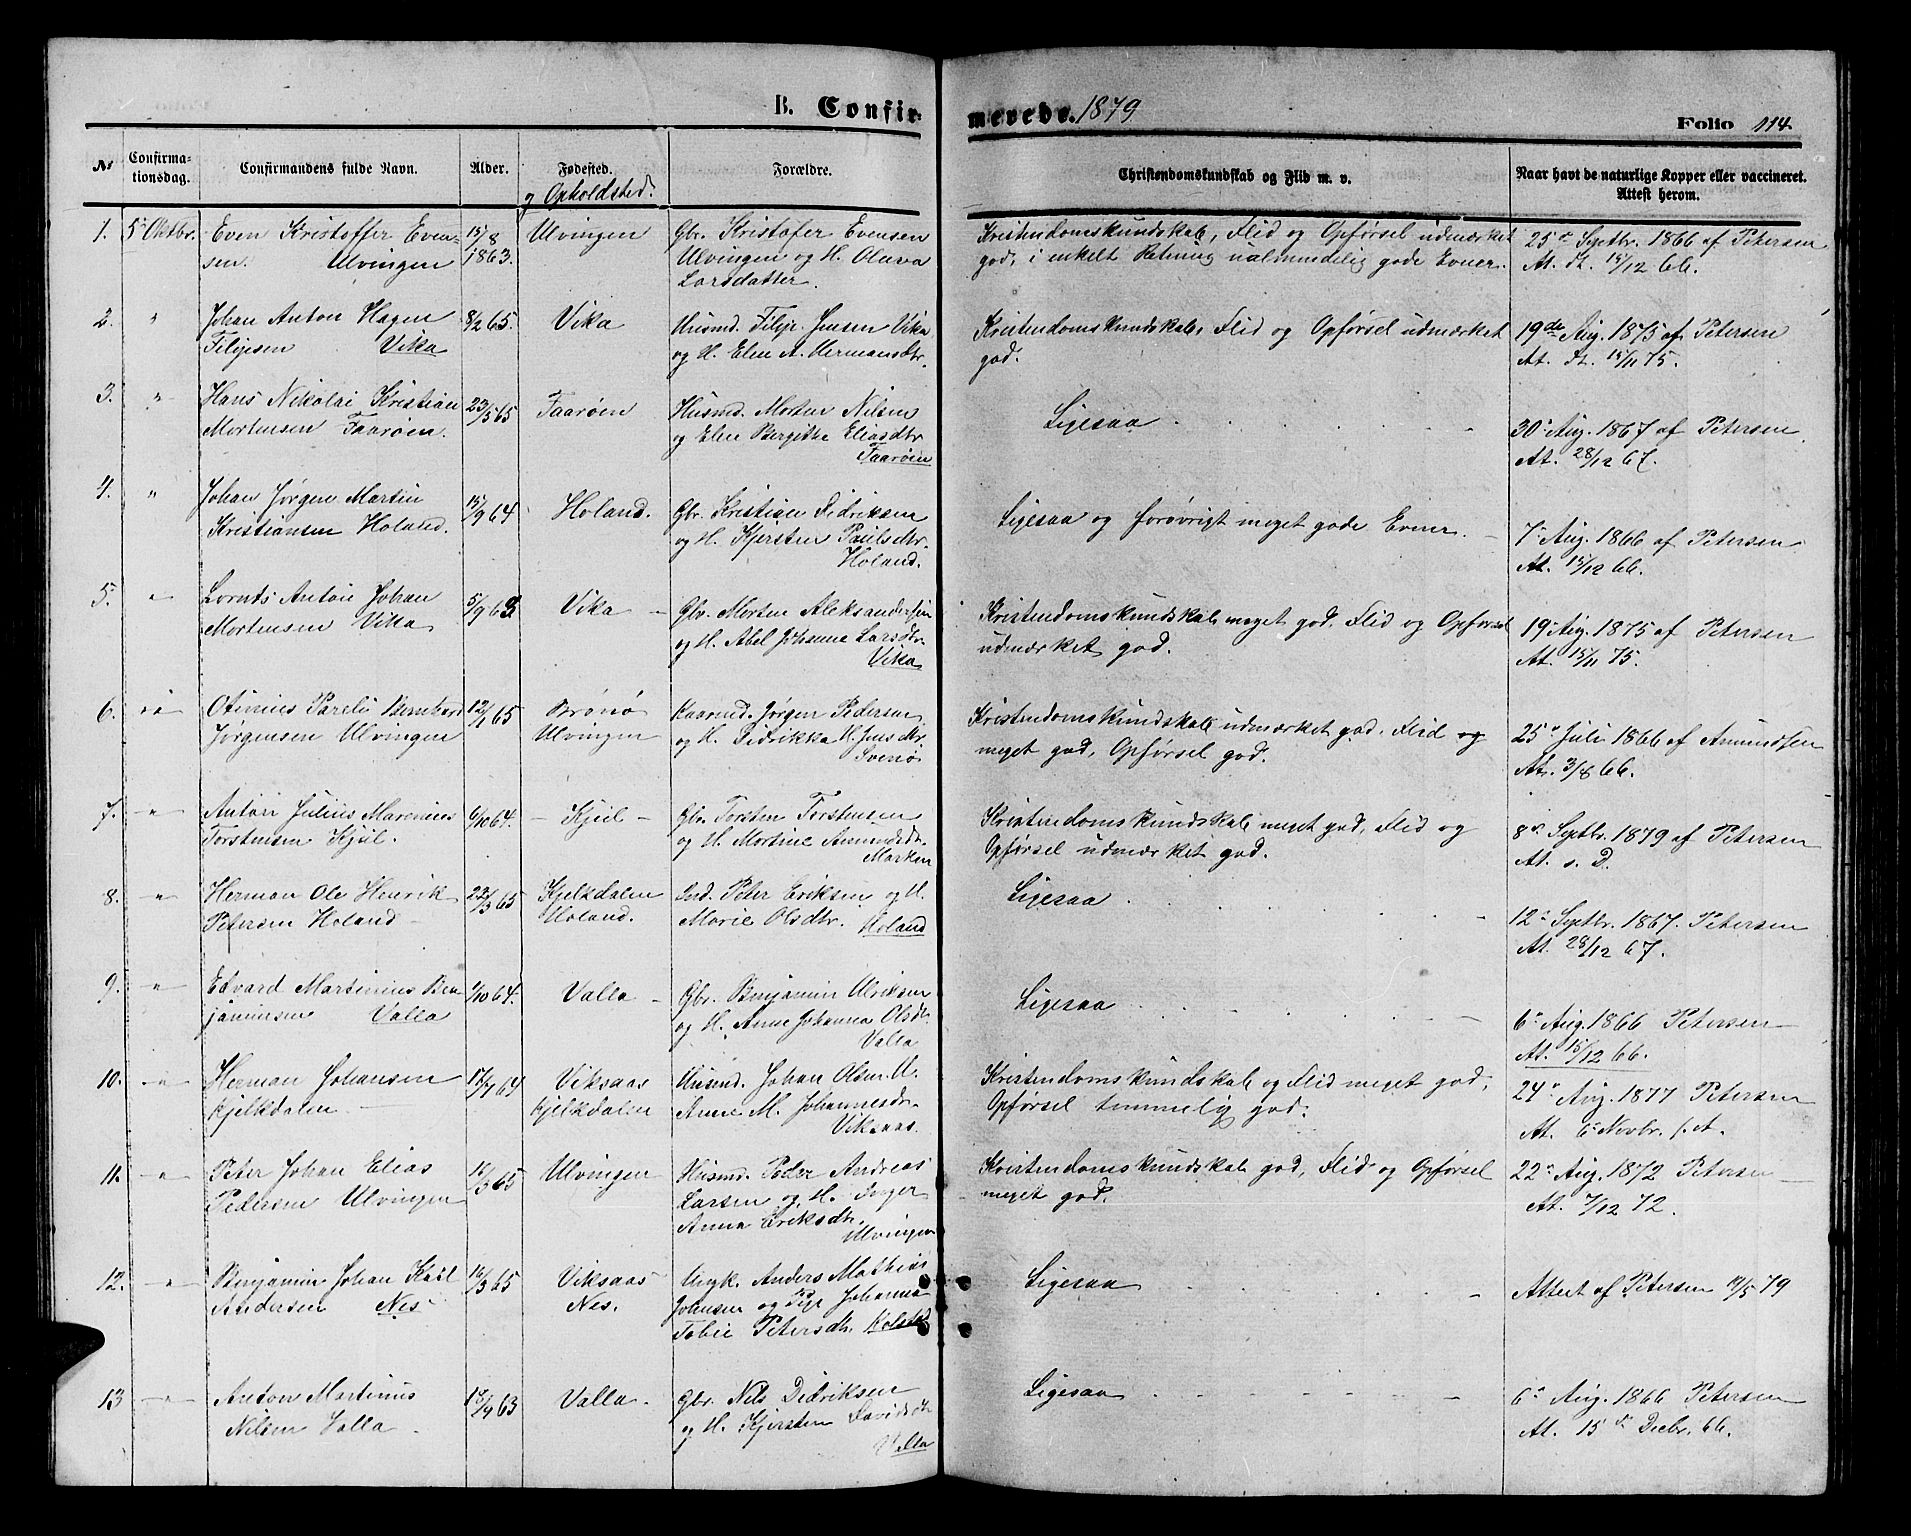 B. Confirmerede. 1879
Folio 114.
No
Confirmationsdag.
Confirmandens fulde Navn.
Alder.
Fødested.
og Opholdsted.
Forældre.
Christendomskundskab og Flid m. v.
Naar havt de naturlige Kopper eller vaccineret.
Attest herom.
1. 5 Oktbr. Even Kristoffer Even- 15/8 Ulvingen Gbr. Kristofer Evensen Kristendomskundskab, Flid og Opførsel udmærket 25de Septbr. 1866 af Petersen
sen. Ulvingen 1863. Ulvingen og H. Olava god, i enkelt Retning ualmindelig gode Evner. At. dt. 15/12 66.
Larsdatter.
2. " Johan Anton Hagen 8/2 65. Vika Husmd. Filip Jensen Vika Kristendomskundskab, Flid og Opførsel udmærket 19de Aug. 1875 af Petersen
Filipsen Vika og H. Elen A. Hermansdtr. god. At. dt. 15/11 75.
3. " Hans Nikolai Kristian 23/5 65 Taarøen Husmd. Morten Nilsen Ligesaa 30 Aug. 1867 af Petersen
Mortensen Taarøen. og Elen Bergitte Eliasdtr At. 28/12 67.
Taarøen
4. " Johan Jørgen Martin 15/9 64 Holand. Gbr. Kristian Didriksen Ligesaa og forøvrigt meget gode Evner. 7 Aug. 1866 af Petersen
Kristiansen Holand. og H. Kjersten Paulsdtr. At. 15/12 66.
Holand.
5. " Lornts Anton Johan 5/9 63 Vika Gbr. Morten Aleksandersen Kristendomskundskab meget god, Flid og Opførsel 19 Aug. 1875 af Petersen
Mortensen Vika og H. Abel Johanna Larsdtr. udmærket god. At. 15/11 75.
Vika
6. " Otinius Parelu Bernhard 12/1 65 Brønø Kaarmd. Jørgen Pedersen Kristendomskundskab udmærket god, Flid og 25 Juli 1866 af Amundsen
Jørgensen Ulvingen Ulvingen og H. Didrikka H. Jensdtr meget god, Opførsel god. At. 3/8 66.
Svenø
7. " Anton Julius Marenius 6/10 64. Kjul Gbr. Torsten Torstensen Kristendomskundskab meget god, Flid og 8de Septbr. 1879 af Petersen
Torstensen Kjul. og H. Martine Amundsdtr. Opførsel udmærket god. At. s. D.
Marken
8. " Herman Ole Henrik 22/3 65 Kjelkdalen Ind. Peter Eriksen og H. Ligesaa 12 Septbr. 1867. Petersen
Petersen Holand Holand. Marie Olsdtr. Holand At. 28/12 67.
9. " Edvard Martinius Ben- 1/10 64. Valla Gbr. Benjamin Ulriksen Ligesaa 6 Aug. 1866 Petersen
jaminsen Valla og H. Anne Johanna Olsdtr. At. 15/12 66.
Valla
10. " Herman Johansen 17/7 64 Viksaas Husmd. Johan Olsen H. Kristendomskundskab og Flid meget god, 24 Aug. 1877 Petersen
Kjelkdalen Kjelkdalen Anne M. Johannesdtr. Opførsel temmelig god. At. 6 Novbr. s. A.
Viksaas.
11. " Peter Johan Elias 16/3 65 Ulvingen Husmd. Peder Andreas Kristendomskundskab god, Flid og Opførsel 22 Aug. 1872 Petersen
Pedersen Ulvingen Larsen og H. Inger meget god. At. 7/12 72.
Anna Eriksdtr. Ulvingen
12. " Benjamin Johan Karl 16/3 65 Viksaas Ungk. Anders Mathias Ligesaa Attest af Petersen 19/5 79
Andersen Nes Nes. Johnsen og Pige Johanna
Tobie Petersdtr.
13 " Anton Martinus 17/4 63 Valla. Gbr. Nils Didriksen Ligesaa 6 Aug. 1866 Petersen
Nilsen Valla og H. Kjersten Davidsdtr At. 15de Decbr. 66.
Valla